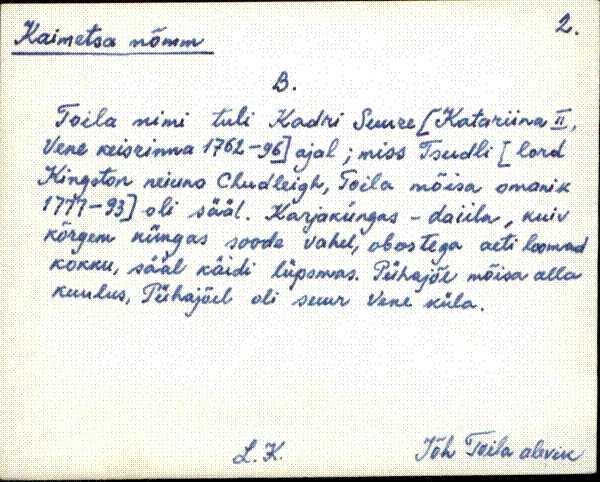 Kaimetsa nõmm
2.
B.
Toila nimi tuli Kadri Suure [Katariina II,
Vene keisrinna 1762-96] ajal; miss Tsudli [lord
Kingston neiuna Chudleigh, Toila mõisa omanik
1777-93] oli sääl. Karjaküngas - daiila, kuiv
kõrgem küngas soode vahel, obostega aeti loomad
kokku, sääl käidi lüpsmas. Pühajõe mõisa alla
kuulus, Pühajõel oli suur Vene küla.
L.K.
Jõh Toila alevik